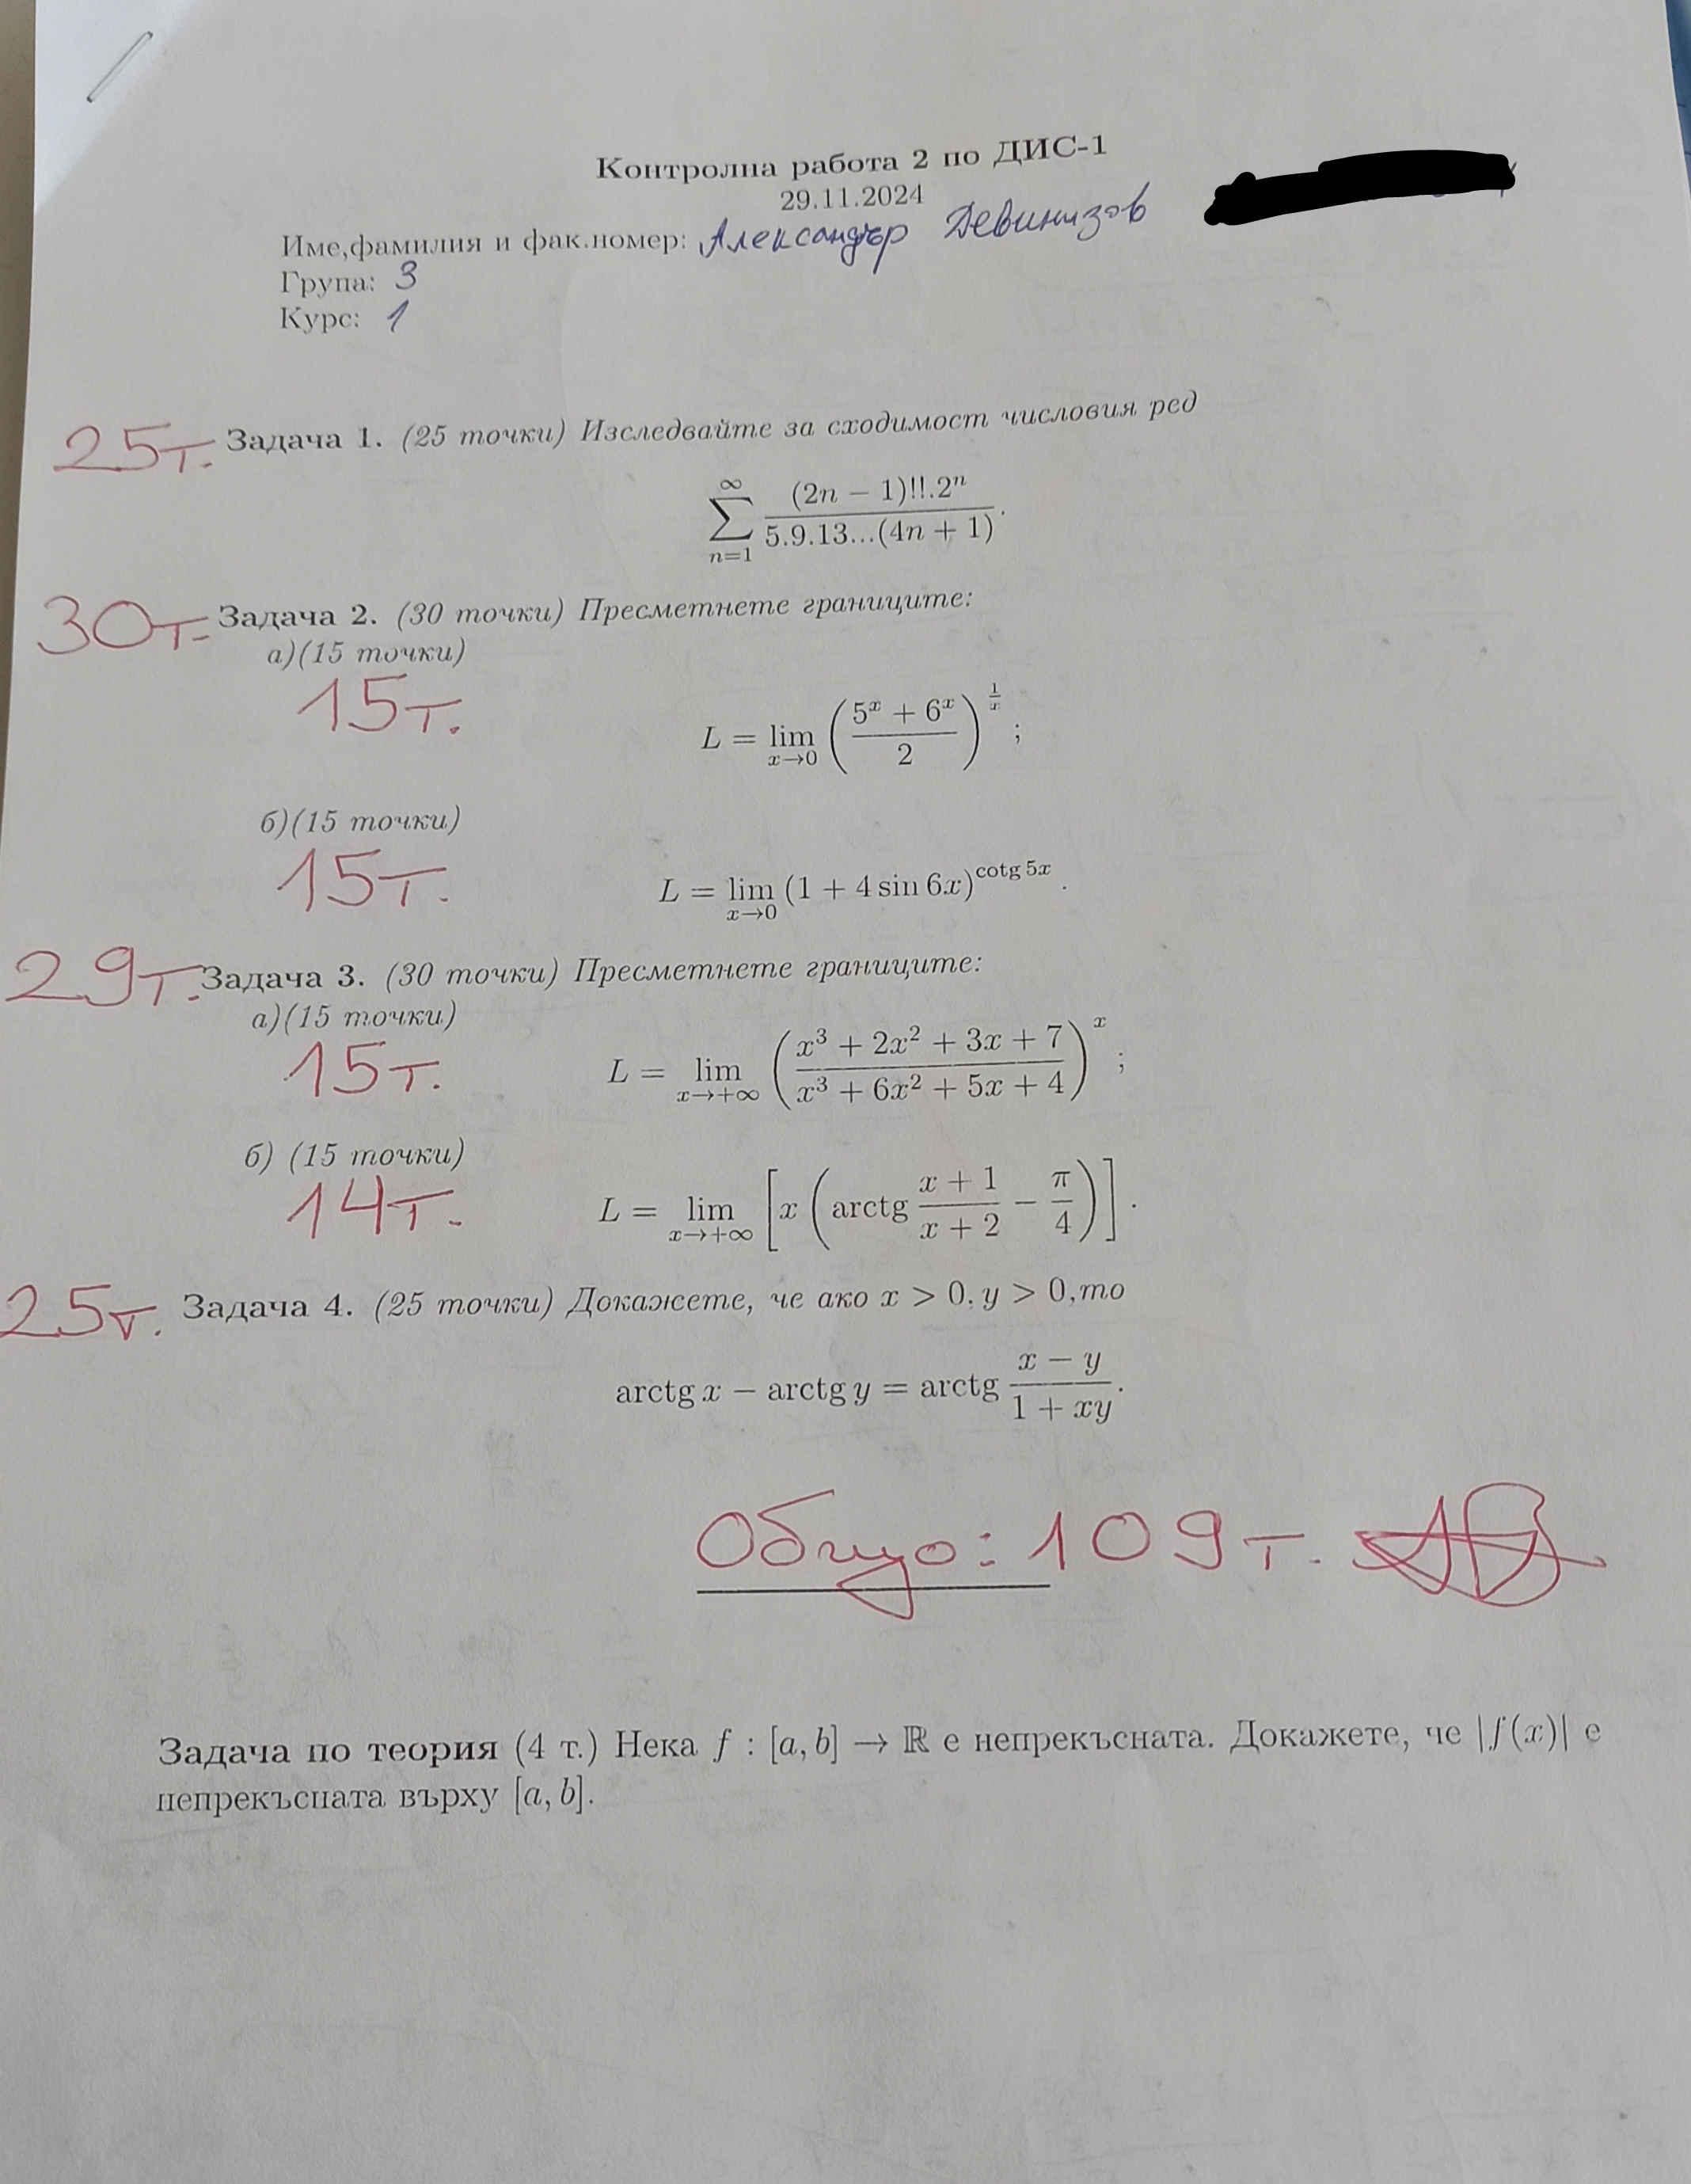 Контролна работа 2 по ДИС-1
29.11.2024
Име,фамилия и фак.номер: Александър Девинизов
Група: 3
Курс: 1
25т. Задача 1. (25 точки) Изследвайте за сходимост числовия ред
∑_{n=1}^{∞} (2n − 1)!!.2^n / 5.9.13...(4n + 1).
30т. Задача 2. (30 точки) Пресметнете границите:
а)(15 точки)
15т.
L = lim_{x→0} ((5^x + 6^x)/2)^{1/x};
б)(15 точки)
15т.
L = lim_{x→0} (1 + 4 sin 6x)^{cotg 5x}.
29т. Задача 3. (30 точки) Пресметнете границите:
а)(15 точки)
15т.
L = lim_{x→+∞} ((x^3 + 2x^2 + 3x + 7)/(x^3 + 6x^2 + 5x + 4))^x;
б) (15 точки)
14т.
L = lim_{x→+∞} [x (arctg (x + 1)/(x + 2) − π/4)].
25т. Задача 4. (25 точки) Докажете, че ако x > 0, y > 0,то
arctg x − arctg y = arctg (x − y)/(1 + xy).
Общо: 109т.
Задача по теория (4 т.) Нека f : [a, b] → ℝ е непрекъсната. Докажете, че |f(x)| е
непрекъсната върху [a, b].